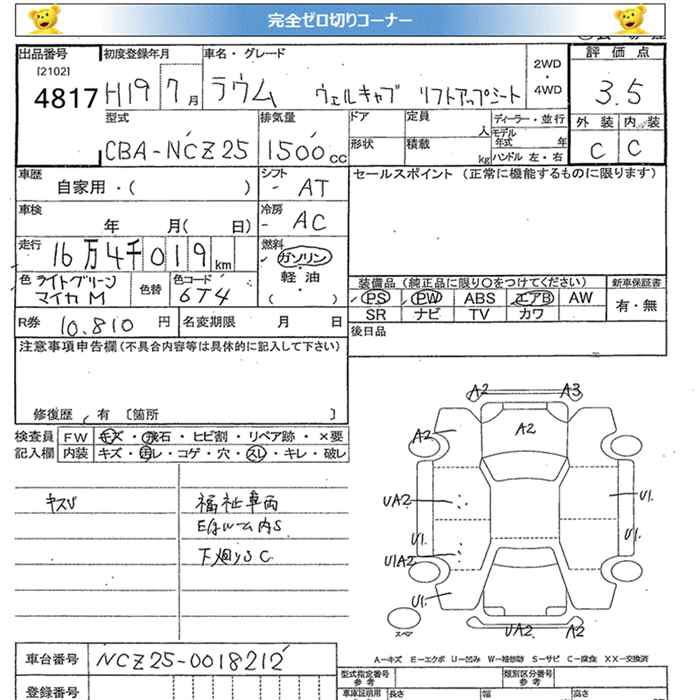 完全ゼロ切りコーナー
出品番号
[2102]
4817
初度登録年月
H19 7 月
車名・グレード
ラウム ウェルキャブ リフトアップシート
2WD
・
4WD
評価点
3.5
外装 内装
C C
型式
CBA-NCZ25
排気量
1500 cc
ドア 定員 人
形状 積載 kg
ディーラー・並行
モデル年式 年
ハンドル 左・右
車歴
自家用・( )
シフト
- AT
車検
年 月( 日)
冷房
- AC
走行
16万4千019 km
燃料
ガソリン
・
軽油
( )
色 ライトグリーンマイカM
色替
色コード
6T4
R券 10,810 円
名変期限 月 日
セールスポイント (正常に機能するものに限ります)
装備品 (純正品に限り○をつけてください)
新車保証書
PS PW ABS エアB AW
SR ナビ TV カワ
有・無
後日品
注意事項申告欄(不具合内容等は具体的に記入して下さい)
修復歴 有 〔箇所 〕
検査員
記入欄
FW キズ・飛石・ヒビ割・リペア跡・×要
内装 キズ・汚レ・コゲ・穴・スレ・キレ・破レ
キズU
福祉車両
EGルーム内S
下廻りSC
A2 A3
A2
A2
UA2
U1
U1A2
U1
U1
U1
UA2 A2
スペア
A-キズ E-エクボ U-凹み W-補修跡 S-サビ C-腐食 XX-交換済
車台番号
NCZ25-0018212
登録番号
型式指定番号
参考
類別区分番号
参考
車庫証明用
長さ 幅 高さ